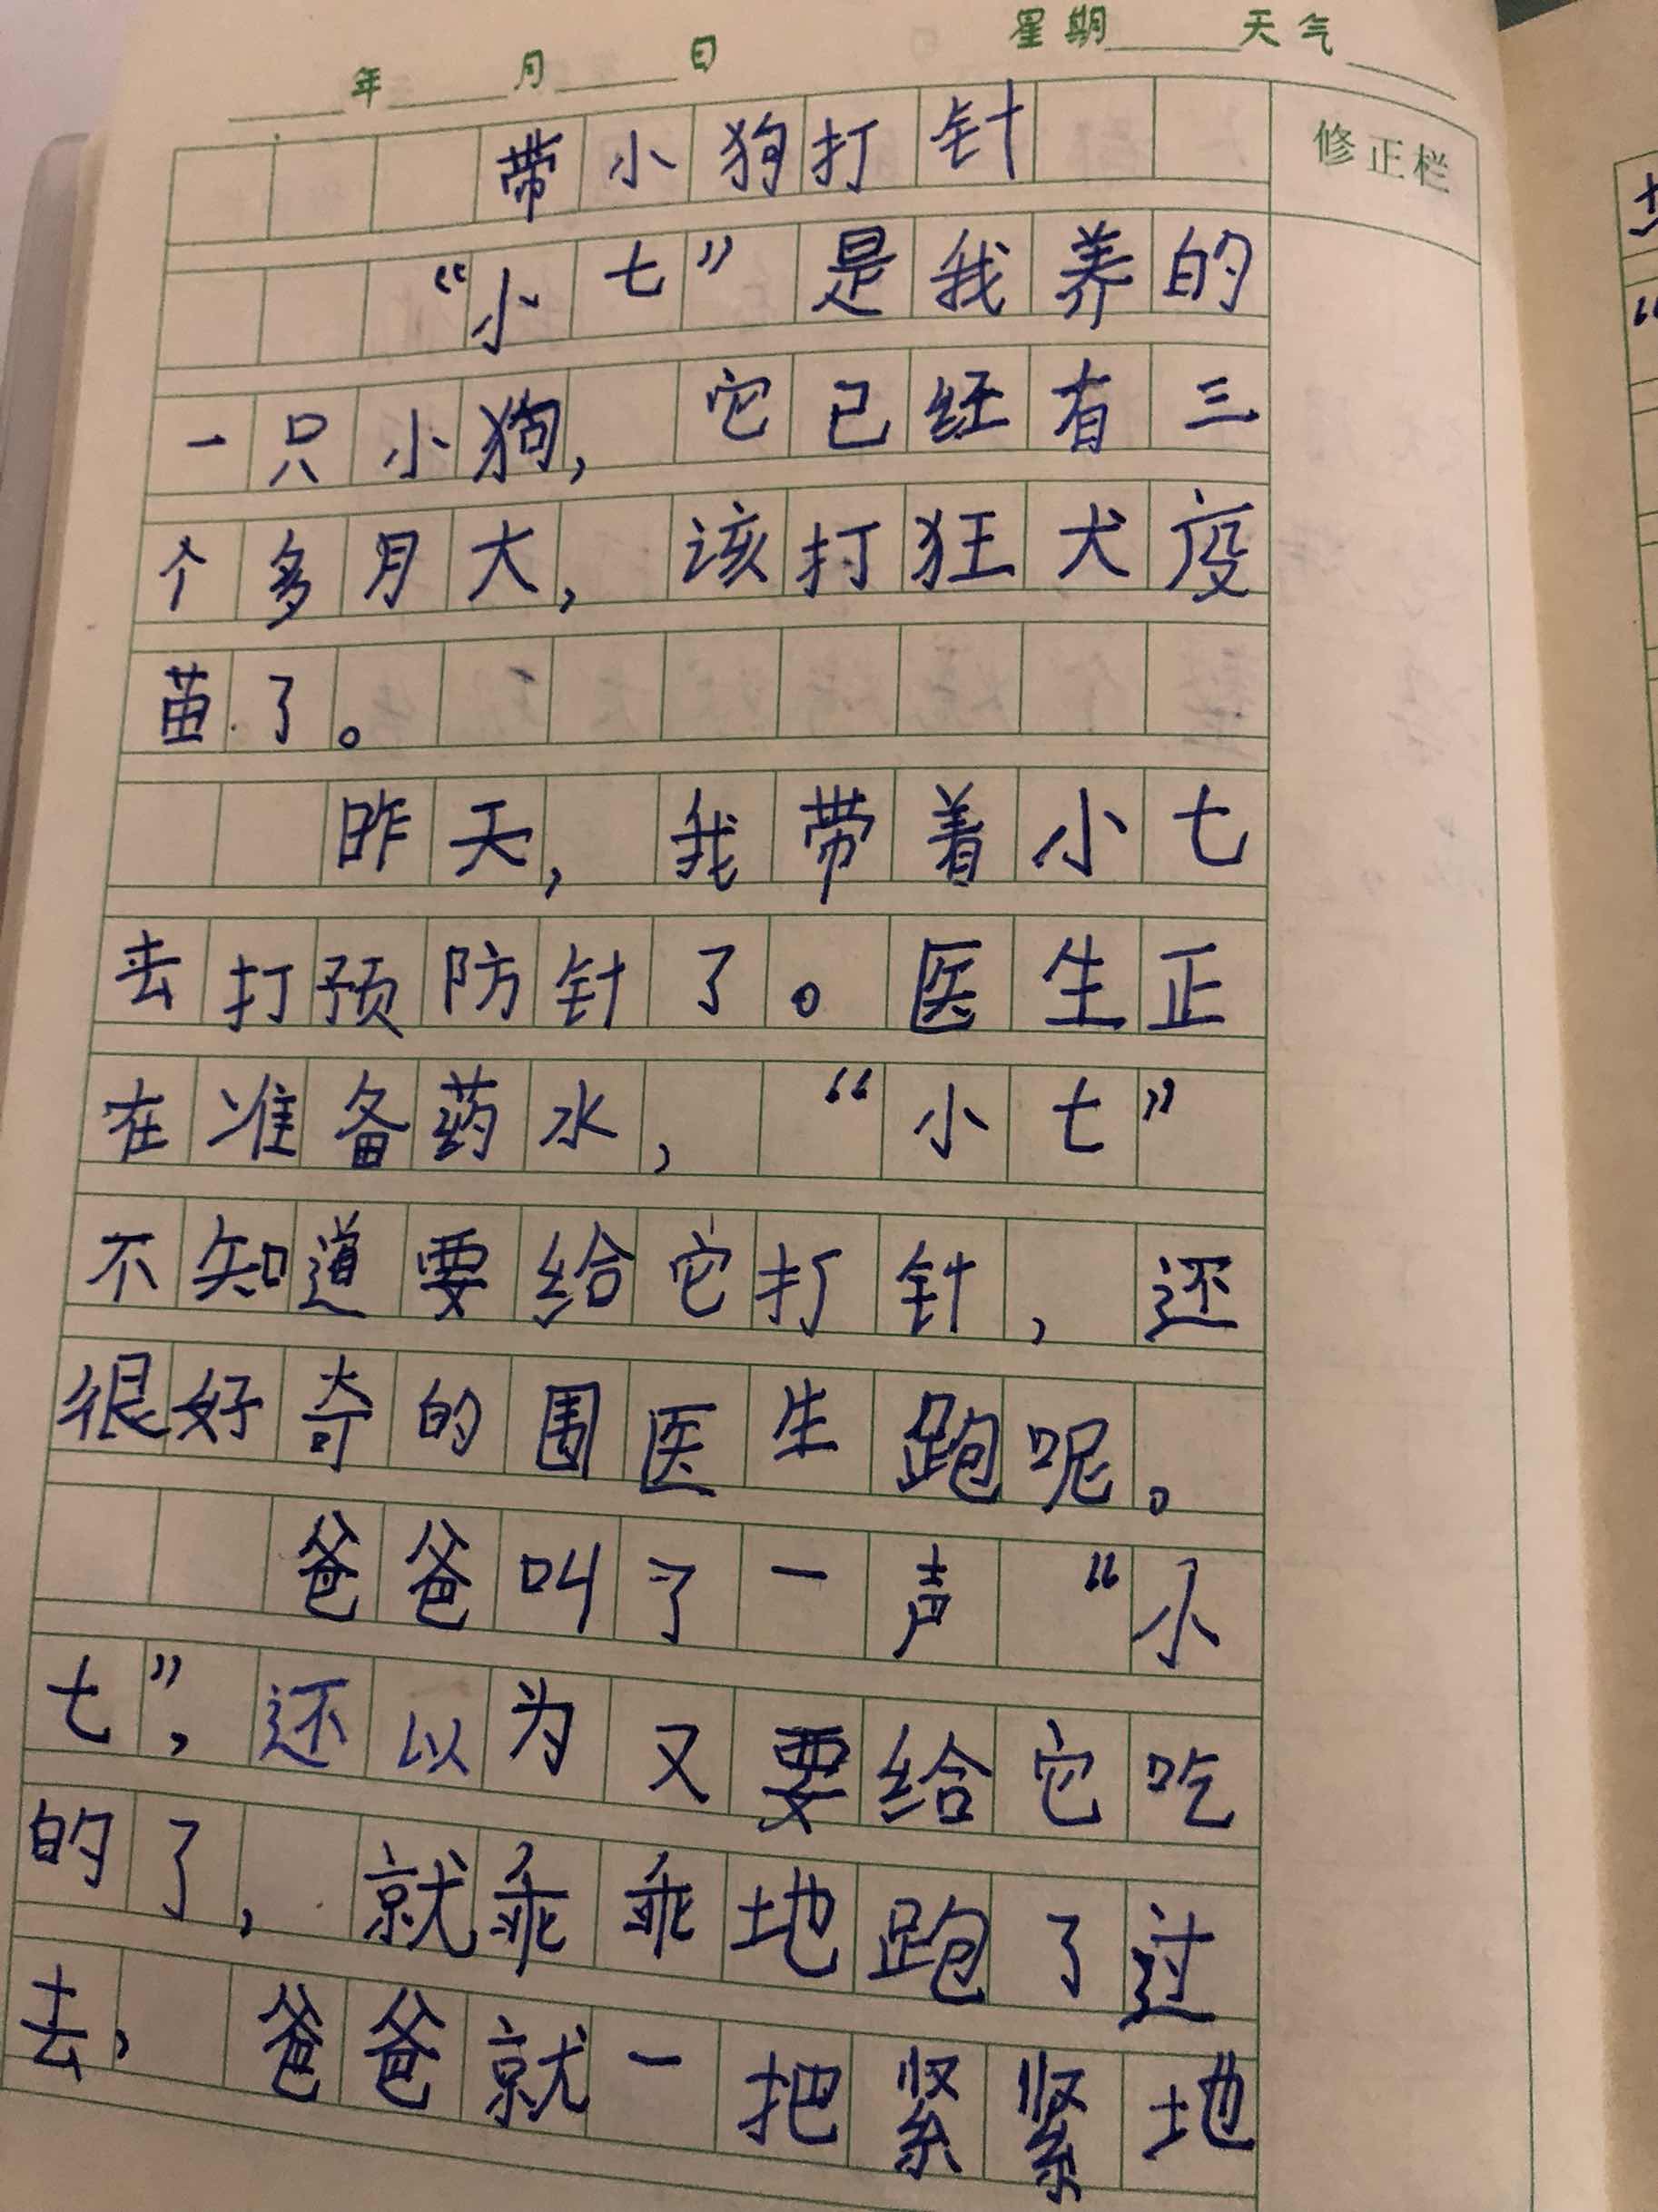 ____年____月____日 星期____天气____
带小狗打针
修正栏
“小七”是我养的
一只小狗，它已经有三
个多月大，该打狂犬疫
苗了。
昨天，我带着小七
去打预防针了。医生正
在准备药水，“小七”
不知道要给它打针，还
很好奇的围医生跑呢。
爸爸叫了一声“小
七”，还以为又要给它吃
的了，就乖乖地跑了过
去，爸爸就一把紧紧地